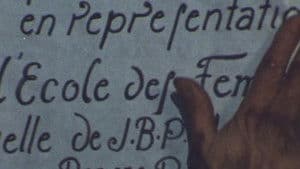 en representatio
l'Ecole des Fem
elle de J.B.P